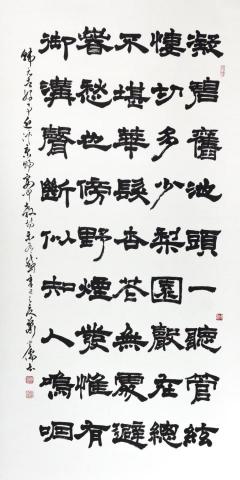 凝碧舊池頭一聽管絃
悽切多少梨園聲在總
不堪華髮杏花無處避
春愁也傍野煙發惟有
御溝聲斷似知人嗚咽
韓元吉好事近汴京賜宴